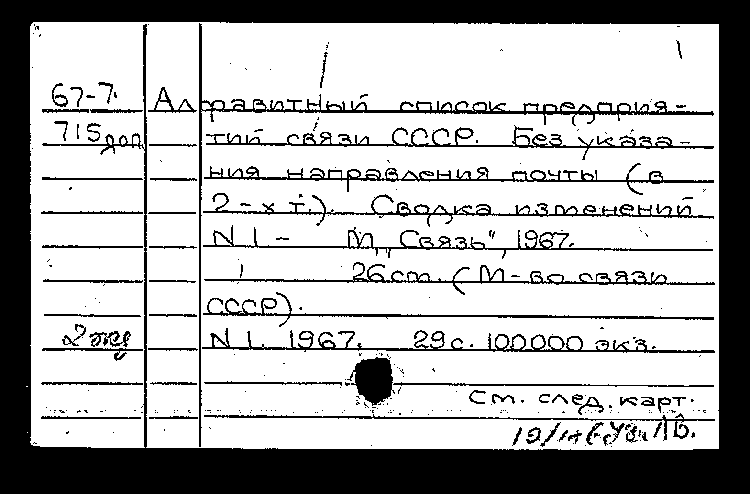 67-7. Алфавитный список предприя-
715доп тий связи СССР. Без указа-
ния направления почты (в
2-х т.). Сводка изменений
N 1 - М, „Связь“, 1967.
26 см. (М-во связи
СССР).
2 экз N 1. 1967. 29 с. 100000 экз.
См. след. карт.